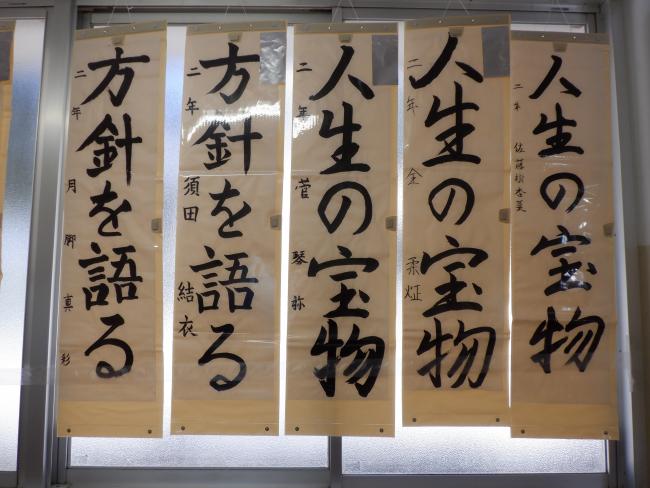 人生の宝物
二年 佐藤
人生の宝物
二年 金 柔炡
人生の宝物
二年 菅 琴弥
方針を語る
二年 須田 結衣
方針を語る
二年 月脚 真彩